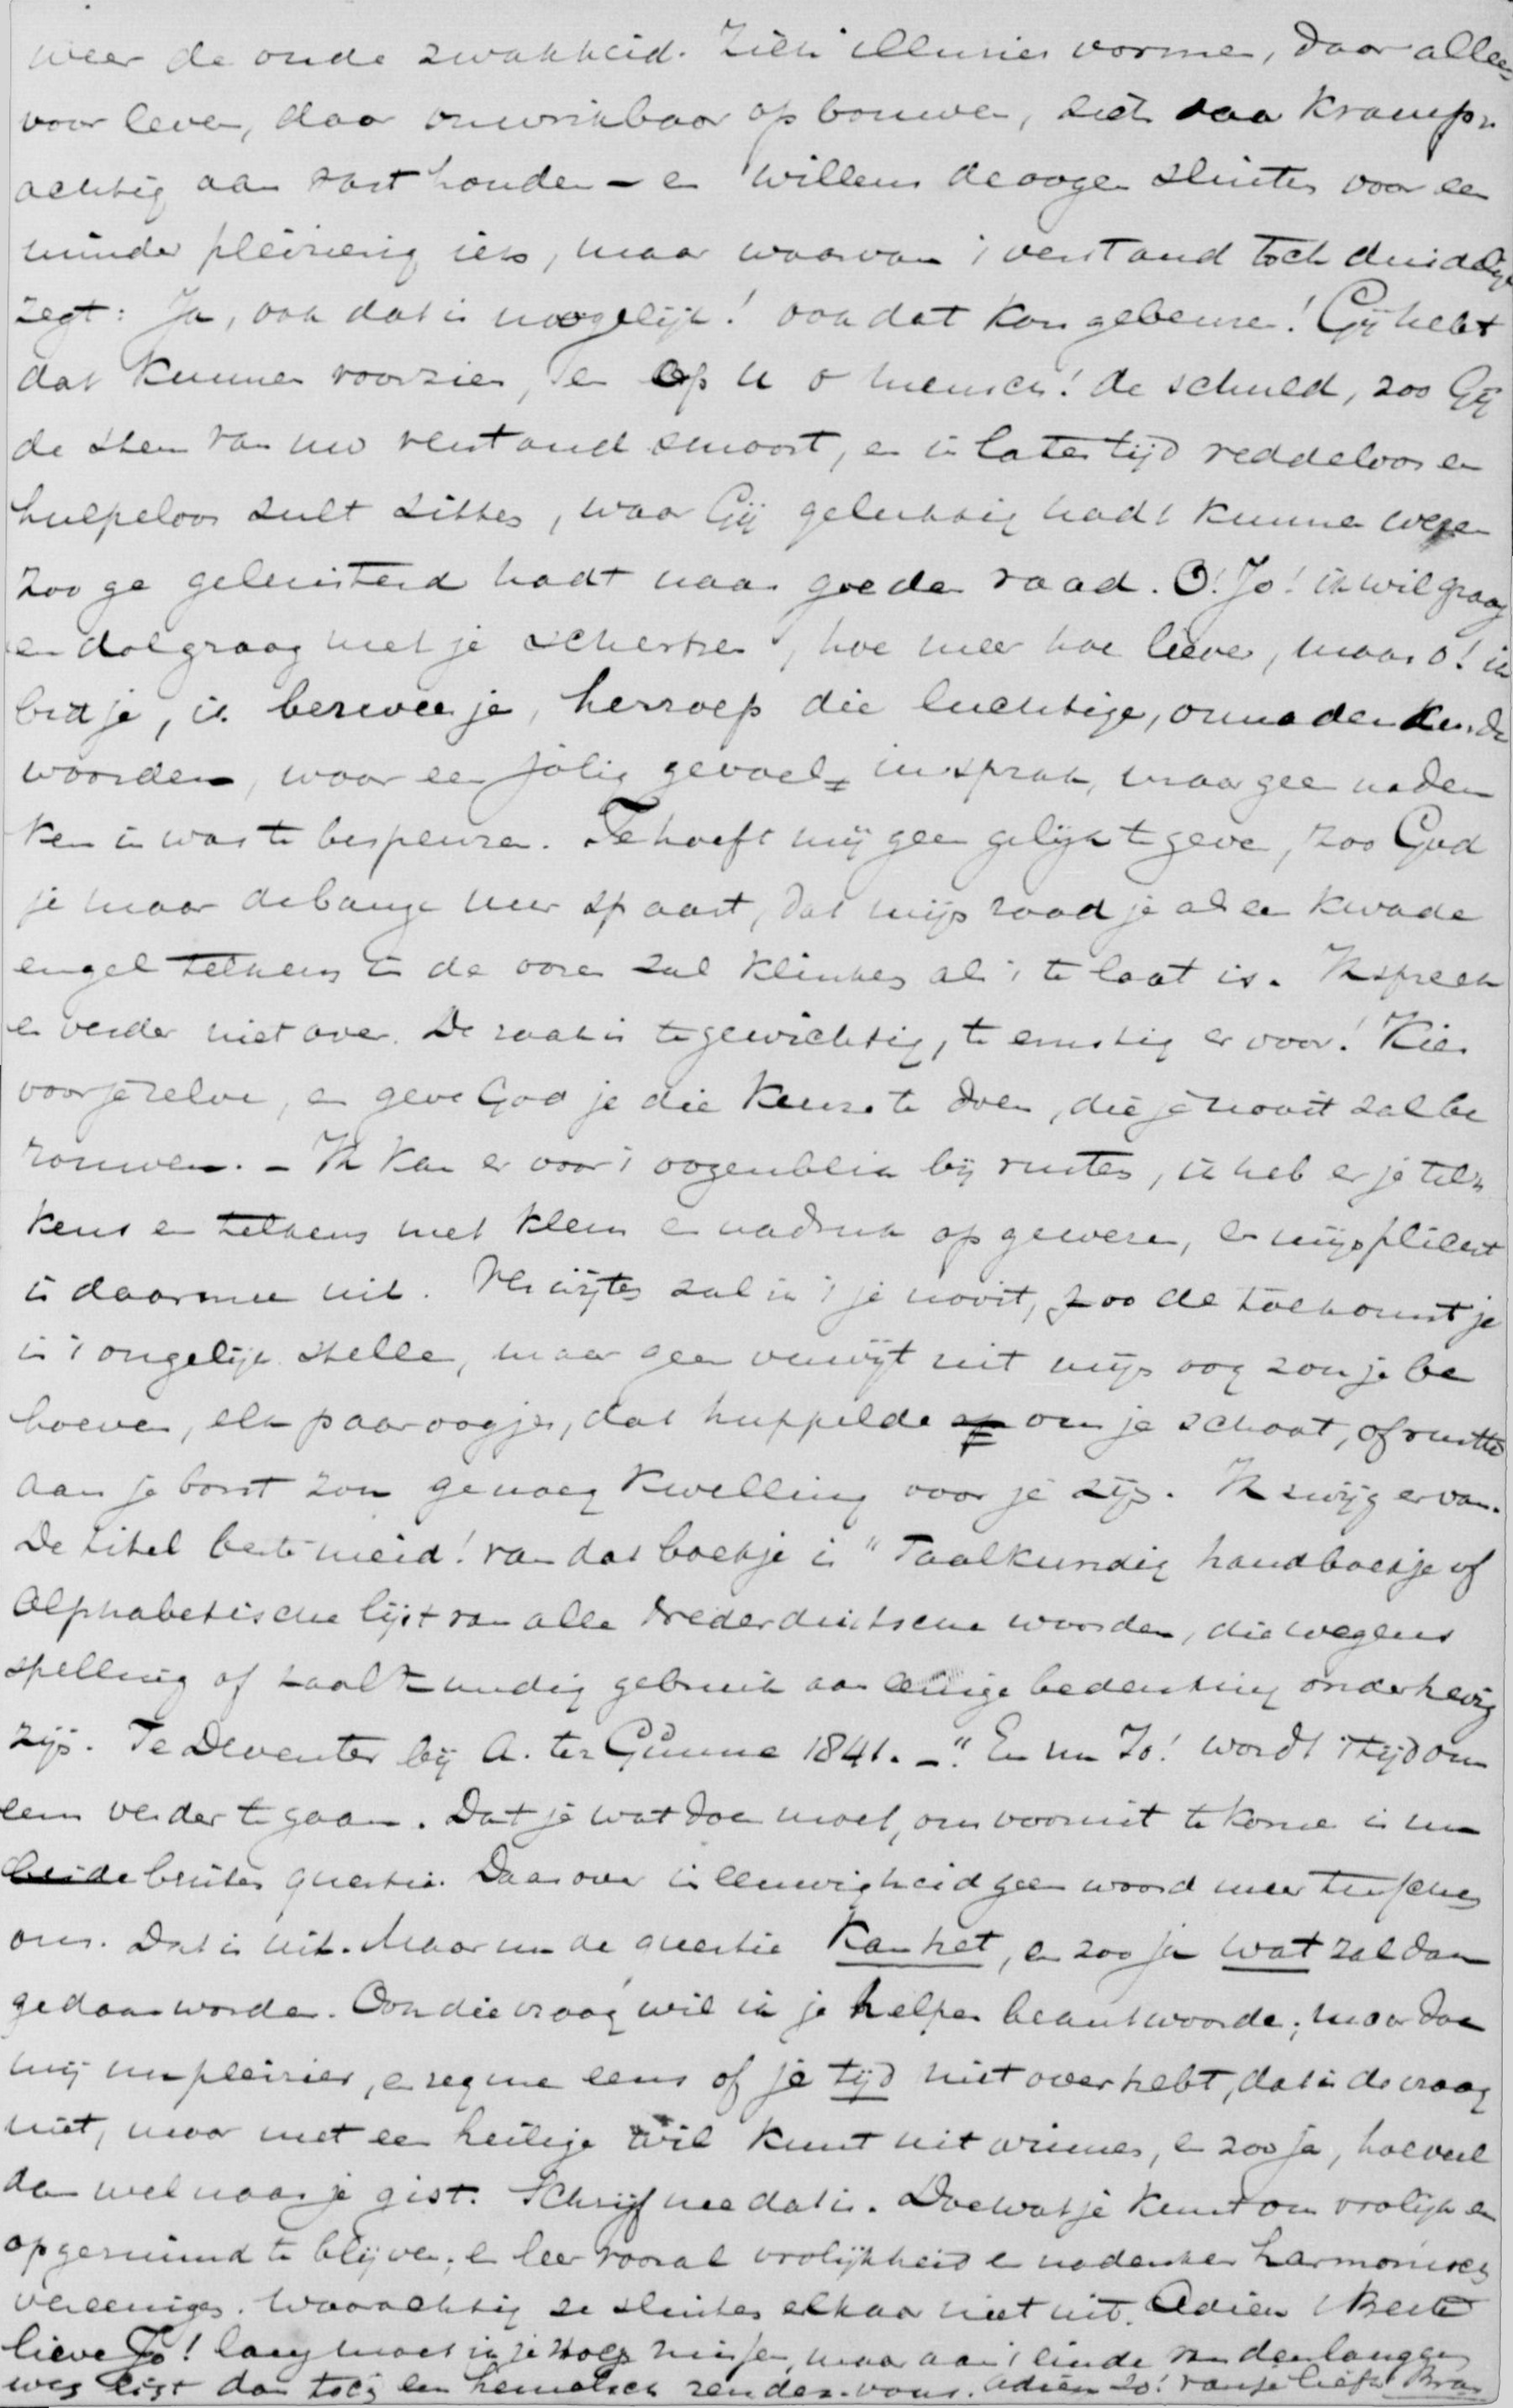 weer de oude zwakheid. Zich illusies vormen, daar alleen
voor leven, daar onwrikbaar op bouwen, zich daar kramp-
achtig aan vasthouden - en willens de oogen sluiten voor een
minder pleizierig iets, maar waarvan 't verstand toch duidelijk
zegt: Ja, ook dat is mogelijk! ook dat kan gebeuren! Gij hebt
dat kunnen voorzien, en op u o mensch! de schuld, zoo Gij
de stem van uw verstand smoort, en in later tijd reddeloos en
hulpeloos zult zitten, waar Gij gelukkig hadt kunnen wezen
zoo ge geluisterd hadt naar goeden raad. O! Jo! ik wil graag
en dolgraag met je schertsen, hoe meer hoe liever, maar o! ik
bid je, ik bezweer je, herroep die luchtige, onnadenkende
woorden, waar een jolig gevoel in sprak, maar geen naden
ken in was te bespeuren. Je hoeft mij geen gelijk te geven, zoo God
je maar de bange uur spaart, dat mijn raad je als een kwade
engel telkens in de ooren zal klinken als 't te laat is. Ik spreek
er verder niet over. De zaak is te gewichtig, te ernstig er voor! Kies
voor je zelve, en geve God je die keuze te doen, die je nooit zal be
rouwen. - Ik kan er voor 't oogenblik bij rusten, ik heb er je tel-
kens en telkens met klem en nadruk op gewezen, en mijn plicht
is daarmee uit. Verwijten zal ik 't je nooit, zoo de toekomst je
in 't ongelijk stelle, maar geen verwijt uit mijn oog zou je be
hoeven, elk paar oogjes, dat huppelde op om je schoot, of rustte
aan je borst zou genoeg kwelling voor je zijn. Ik zwijg ervan.
De titel beste meid! van dat boekje is "Taalkundig handboekje of
Alphabetische lijst van alle Nederduitsche woorden, die wegens
spelling of taalkundig gebruik aan eenige bedenking onderhevig
zijn. Te Deventer bij A. ter Gunne 1841. -". En nu Jo! wordt 't tijd om
eens verder te gaan. Dat je wat doen moet, om vooruit te komen is nu
beide buiten questie. Daarover in eeuwigheid geen woord meer tusschen
ons. Dat is uit. Maar nu de questie Kan het, en zoo ja wat zal dan
gedaan worden. Ook die vraag wil ik je helpen beantwoorden; maar doe
mij nu pleizier, en zeg me eens of je tijd niet over hebt, dat is de vraag
niet, maar met een heilige wil kunt uitwinnen, en zoo ja, hoeveel
dan wel naar je gist. Schrijf me dat is. Doe wat je kunt om vrolijk en
opgeruimd te blijven; en leer vooral vrolijkheid en nadenken harmonisch
vereenigen. Waarachtig ze sluiten elkaar niet uit. Adieu Beste
lieve Jo! lang moet ik je nog missen, maar aan 't einde van den langen
weg ligt dan toch een hemelsch rendez-vous. Adieu Jo! van je liefh. Bram